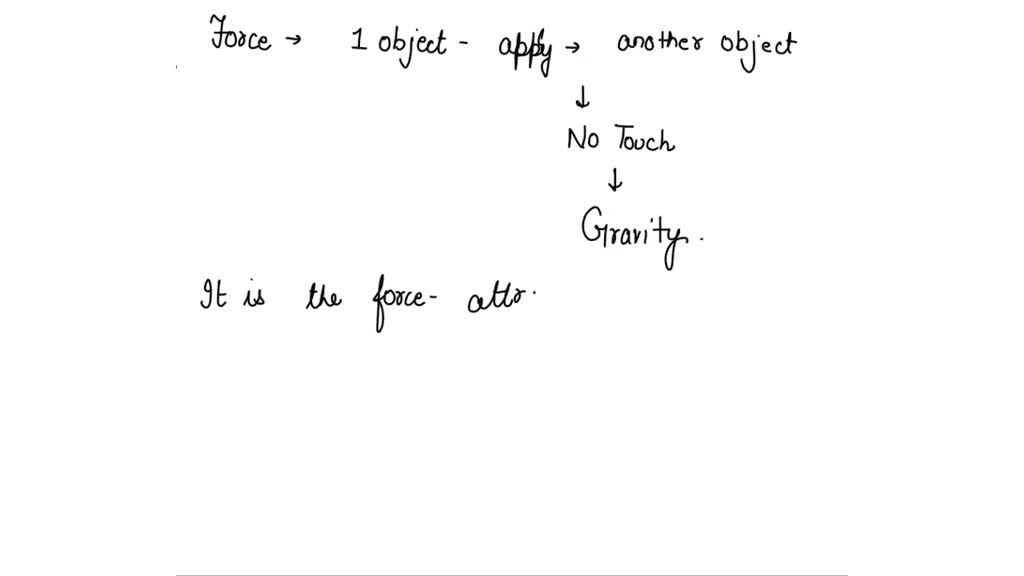 Force → 1 object - apply → another object
↓
No Touch
↓
Gravity.
It is the force- attr.